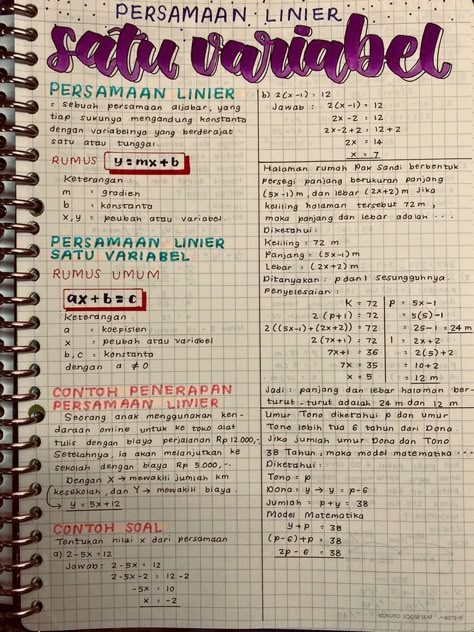 PERSAMAAN LINIER
satu variabel
PERSAMAAN LINIER
= sebuah persamaan aljabar, yang
tiap sukunya mengandung konstanta
dengan variabelnya yang berderajat
satu atau tunggal.
RUMUS y = mx + b
Keterangan :
m = gradien
b = konstanta
x, y = peubah atau variabel
PERSAMAAN LINIER
SATU VARIABEL
RUMUS UMUM
ax + b = c
Keterangan :
a = koepisien
x = peubah atau variabel
b, c = konstanta
dengan a ≠ 0
CONTOH PENERAPAN
PERSAMAAN LINIER
Seorang anak menggunakan ken-
daraan online untuk ke toko alat
tulis dengan biaya perjalanan Rp 12.000,-
Setelahnya, ia akan melanjutkan ke
sekolah dengan biaya Rp 5.000,-.
Dengan X → mewakili jumlah km
kesekolah, dan Y → mewakili biaya.
→ y = 5x + 12
CONTOH SOAL
Tentukan nilai x dari persamaan
a) 2 - 5x = 12
Jawab : 2 - 5x = 12
2 - 5x - 2 = 12 - 2
-5x = 10
x = -2
b) 2(x-1) = 12
Jawab : 2(x-1) = 12
2x - 2 = 12
2x - 2 + 2 = 12 + 2
2x = 14
x = 7
Halaman rumah Pak Sandi berbentuk
Persegi panjang berukuran panjang
(5x-1)m, dan lebar (2x+2)m Jika
keliling halaman tersebut 72 m,
maka panjang dan lebar adalah ...
Diketahui :
Keliling = 72 m
Panjang = (5x-1)m
Lebar = (2x+2)m
Ditanyakan : p dan l sesungguhnya.
Penyelesaian :
K = 72
2(p+l) = 72
2((5x-1)+(2x+2)) = 72
2(7x+1) = 72
7x+1 = 36
7x = 35
x = 5
P = 5x-1
= 5(5)-1
= 25-1 = 24 m
l = 2x+2
= 2(5)+2
= 10+2
= 12 m
Jadi : panjang dan lebar halaman ber-
turut - turut adalah 24 m dan 12 m
Umur Tono diketahui p dan umur
Tono lebih tua 6 tahun dari Dona.
Jika jumlah umur Dona dan Tono
38 Tahun, maka model matematika ...
Diketahui :
Tono = p
Dona = y → y = p-6
Jumlah = p + y = 38
Model Matematika
y + p = 38
(p-6)+p = 38
2p - 6 = 38
KOKUYO LOOSE LEAF